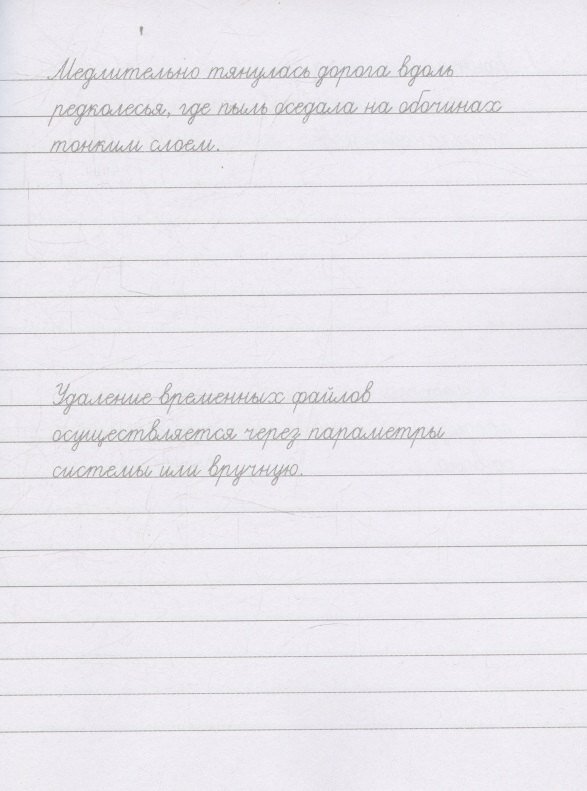 Медлительно тянулась дорога вдоль
редколесья, где пыль оседала на обочинах
тонким слоем.
Удаление временных файлов
осуществляется через параметры
системы или вручную.